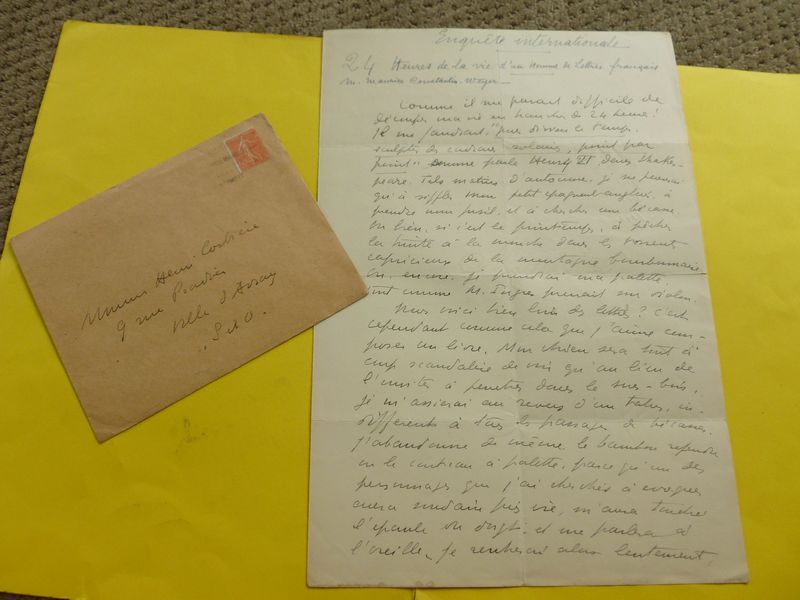 Monsieur Henri
9 rue Pradier
Ville d'Avray
S et O
Enquête internationale
24 Heures de la vie d'un Homme de Lettres français
M. Maurice Constantin-Weyer
Comme il me paraît difficile de
découper ma vie en tranches de 24 heures!
Il me faudrait, "pour diviser le temps,
sculpter des cadrans solaires, point par
point" comme parle Henry VI dans Shakes-
peare. Tels matins d'automne, je ne pensai
qu'à siffler mon petit épagneul-anglais, à
prendre mon fusil, et à chercher une bécasse.
Ou bien, si c'est le printemps, à pêcher
la truite à la mouche dans les torrents
capricieux de la montagne bourbonnaise.
Ou, encore, je prendrai ma palette,
tout comme M. Ingres prenait son violon.
Nous voici bien loin des lettres? C'est
cependant comme cela que j'aime com-
poser un livre. Mon chien sera tout à
coup scandalisé de voir qu'au lieu de
l'inviter à pénétrer dans le sous-bois,
je m'assierai au revers d'un talus, in-
différent à tous les passages de bécasses.
J'abandonne de même le bambou refendu
ou le couteau à palette, parce qu'un des
personnages que j'ai cherchés à évoquer
aura soudain pris vie, m'aura touché
l'épaule du doigt, et me parlera à
l'oreille. Je rentrerai alors lentement,